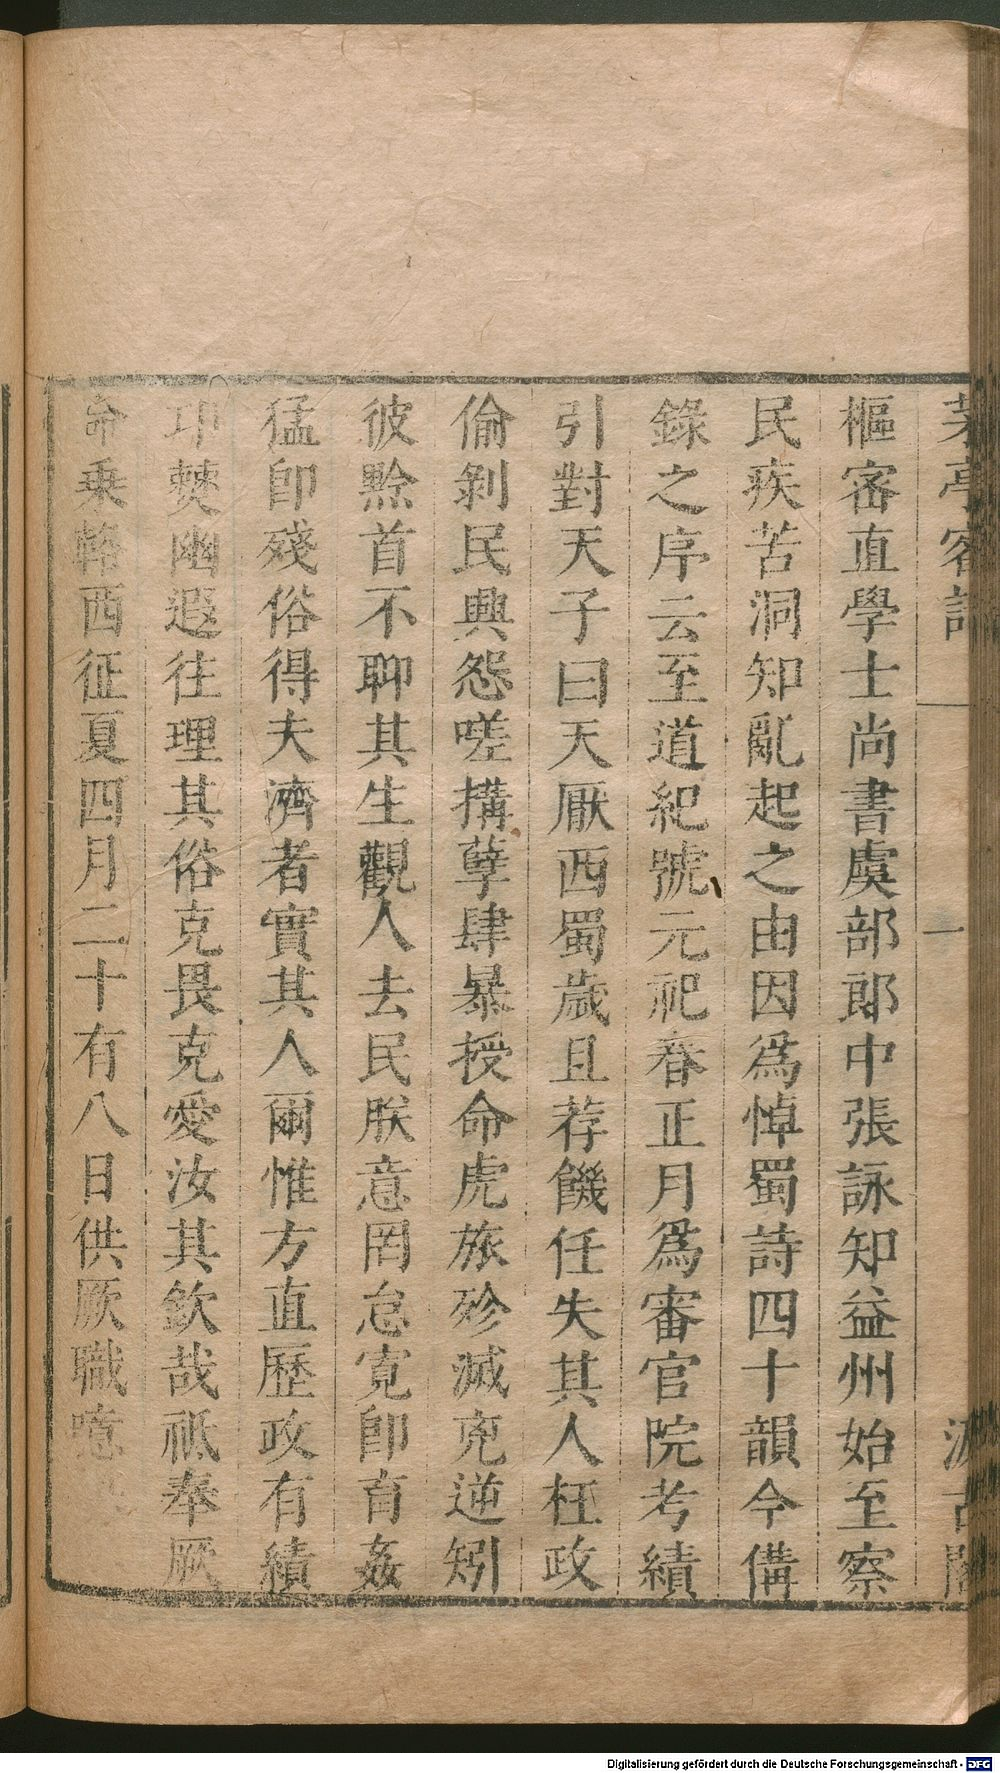 茅亭客話
一
汲古閣
樞密直學士尚書虞部郎中張詠知益州始至察
民疾苦洞知亂起之由因爲悼蜀詩四十韻今備
錄之序云至道紀號元祀春正月爲審官院考績
引對天子曰天厭西蜀歲且荐饑任失其人枉政
偷剝民興怨嗟搆孽肆暴授命虎旅殄滅兇逆矧
彼黔首不聊其生觀人去民朕意罔怠寬卽育姦
猛卽殘俗得夫濟者實其人爾惟方直歷政有績
卭僰幽遐往理其俗克畏克愛汝其欽哉祗奉厥
命乗輅西征夏四月二十有八日供厥職噫
Digitalisierung gefördert durch die Deutsche Forschungsgemeinschaft - DFG